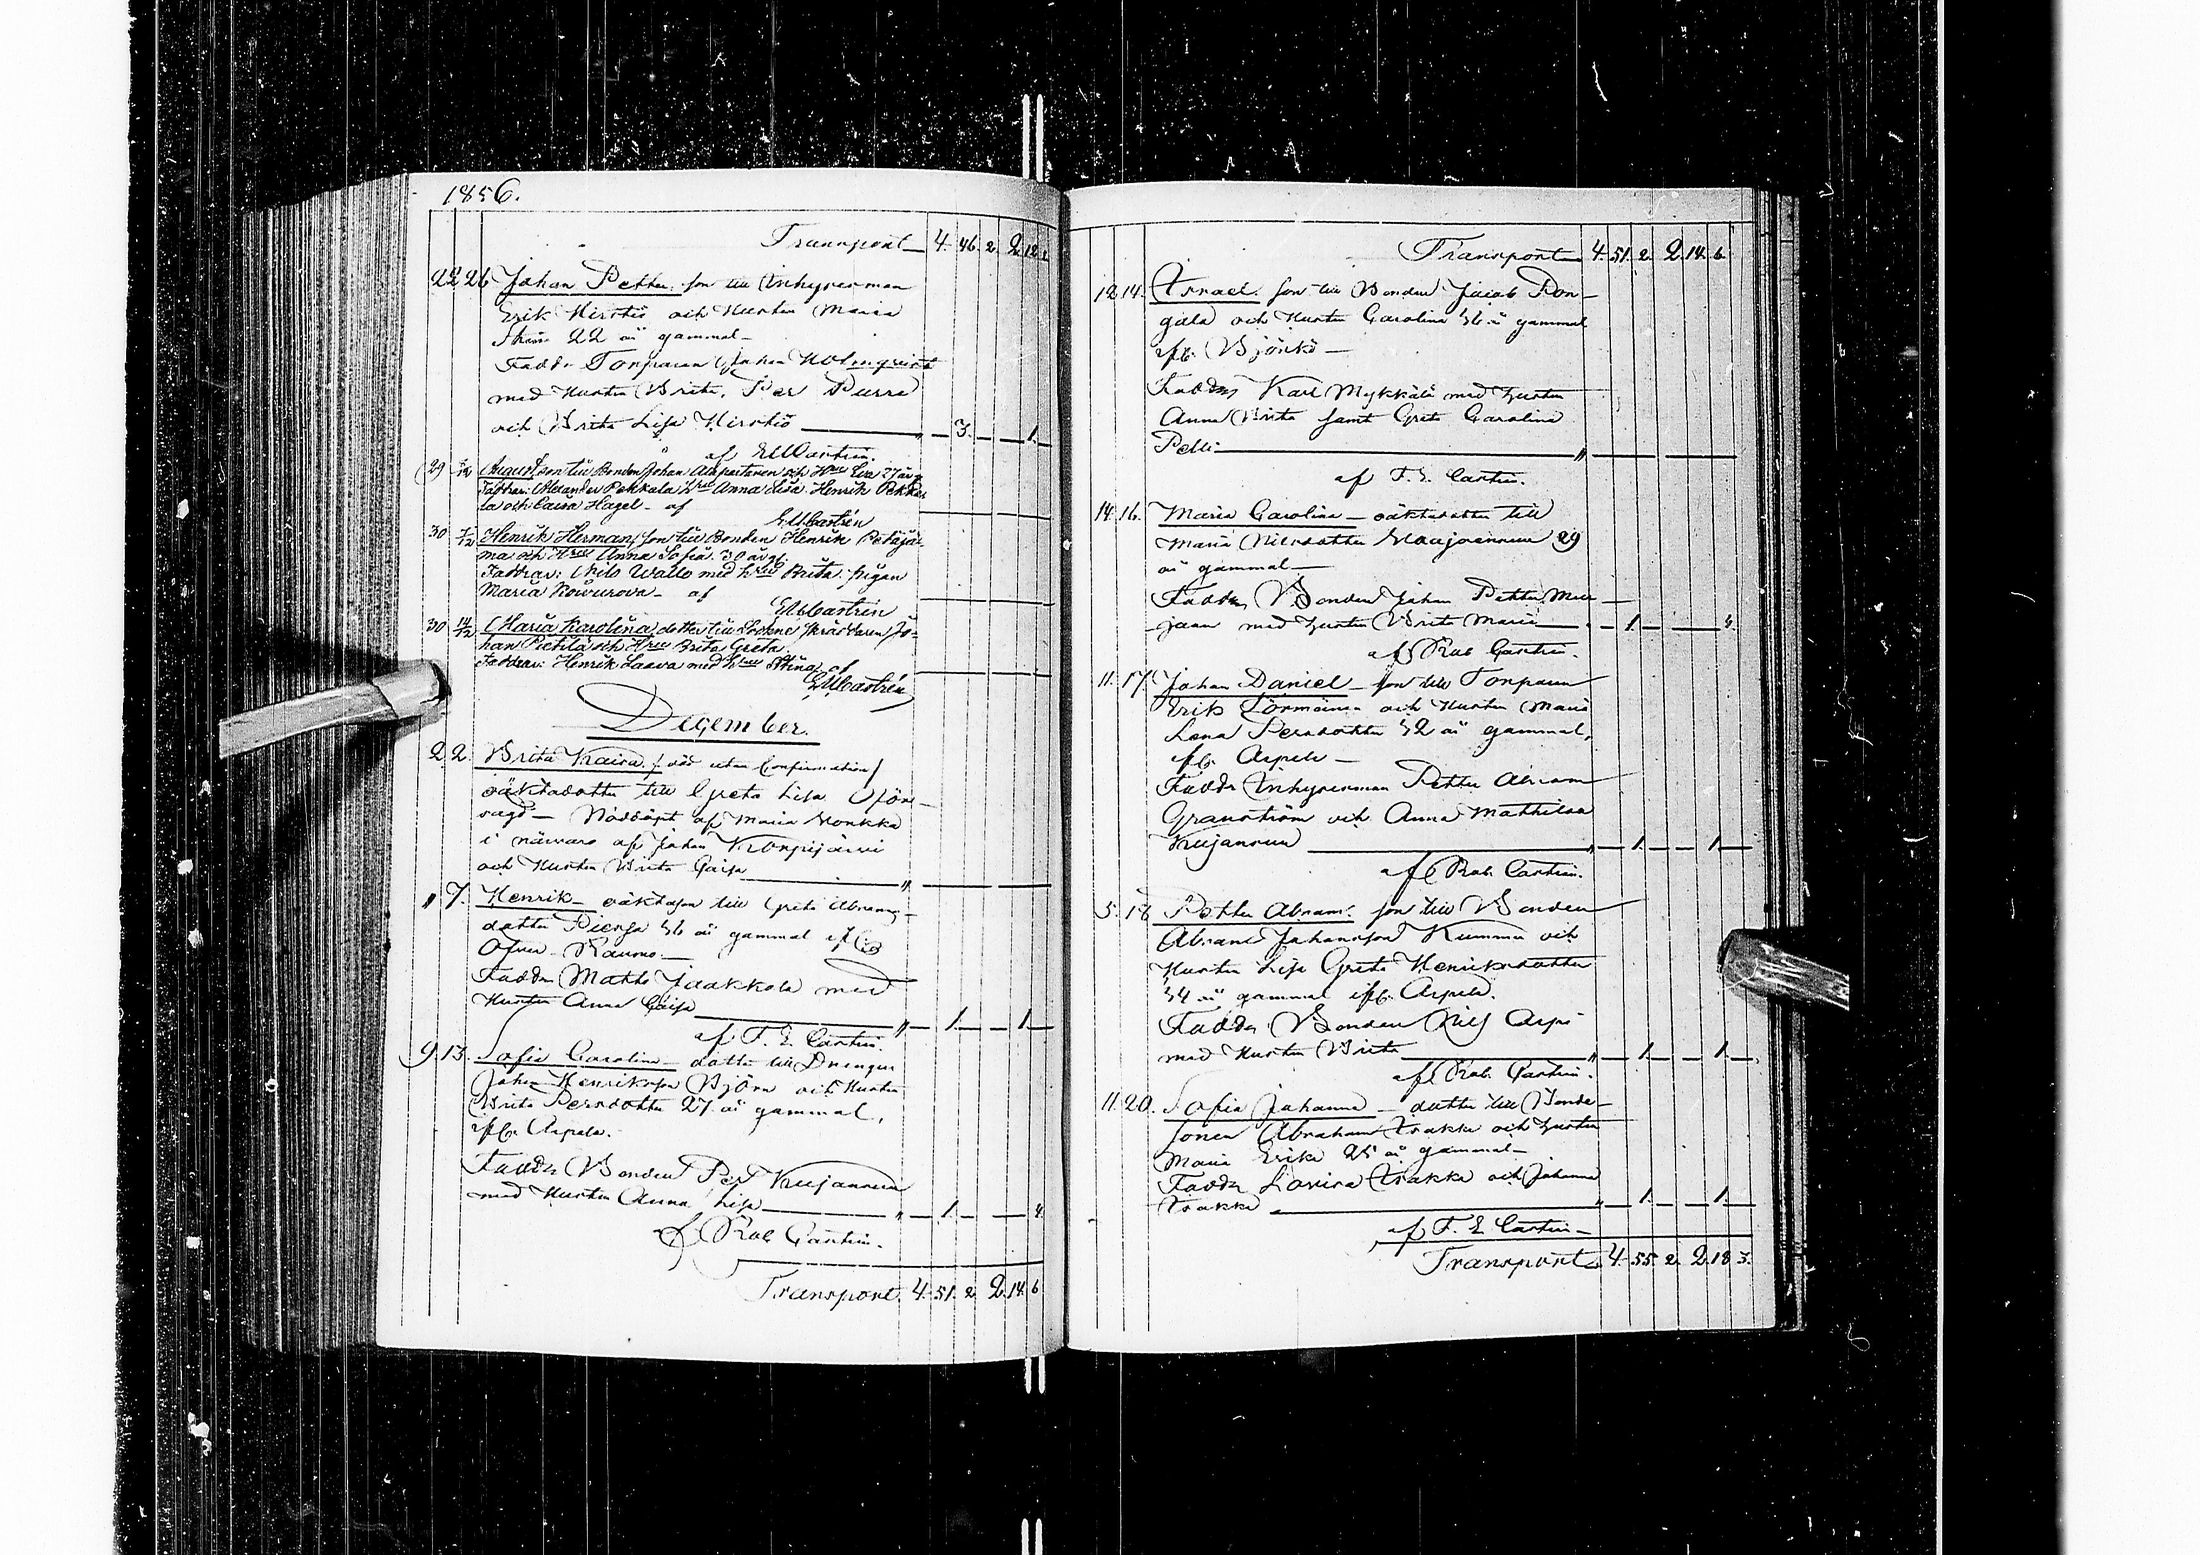 1856.
Transport 4. 46. 2. 2. 12. 2.
22 26 Johan Petter. son till Inhysesman
Erik Hirstiö och Hustru Maria
Stina 22 år gammal
Faddr Torparen Johan Holmqvist
med Hustru Brita, Per Purra
och Brita Lisa Hirstiö " 3. 1.
af EMCastrén.
29 7/12 August son till Bonden Johan Alaportanen och Hru Eva 27 år g.
Faddrar: Alexander Pekkala hru Anna Lisa Henrik Pekka-
la och Caisa Hagel - af
EMCastrén
30 7/12 Henrik Herman, son till Bonden Henrik Petäjä-
ma och Hru Anna Sofia. 30 år g.
Faddrar: Nils Wallo med hru Brita. pigan
Maria Kowurova - af
EMCastrén
30 14/12 Maria Karolina dotter till Sockne skräddaren Jo-
han Pietilä och Hru Brita Greta.
Faddrar: Henrik Laava med hru Stina af
EMCastrén
December.
2. 2. Brita Kaisa. / död utan Confirmation /
oäkta dotter till Greta Lisa
Nöddöpt af Maria
i närvaro af Johan Konpijärvi
och Hustru Brita Caisa "
" 7. Henrik - oäkta son till Greta Abrams-
dotter Piensa 36 år gammal ifr.
Öfver-Raumo.
Faddr Matts Jaakkola med
Hustru Anna Caisa " 1. 1.
af F. E. Castrén.
9. 13. Sofia Carolina - dotter till Drengen
Johan Henriksson Björn och Hustru
Brita Persdotter 27 år gammal,
ifr. Arpela.
Faddr Bonden Per Kujanen
med Hustru Anna Lisa " 1. 4.
af Rob Castrén.
Transport. 4. 51. 2. 2. 14. 6
Transport 4. 51. 2. 2. 14. 6.
12. 14. Israel. son till Bonden Jacob Pon-
gala och Hustru Carolina 36 år gammal
ifr. Björkö
Faddr Karl Mykkälä med hustru
Anna Brita samt Greta Carolina
Pelli "
af F. E. Castrén.
14. 16. Maria Carolina - oäkta dotter till
Maria Nilsdotter 29
år gammal
Faddr Bonden Johan Petter
med hustru Brita Maria 1. 4.
af Rob Castrén.
11. 17. Johan Daniel - son till Torparen
Erik Törmänen och Hustru Maria
Lena Persdotter 32 år gammal,
ifr. Arpela
Faddr Inhysesman Petter Abram
Granström och Anna Mathilda
Kujanen " 1. 1.
af Rob. Castrén.
5. 18 Petter Abram. son till Bonden
Abram Johansson Kumma och
Hustru Lisa Greta Henriksdotter
34 år gammal ifr. Arpela.
Faddr Bonden Nils Arpi
med Hustru Brita " 1. 1.
af Rob. Castrén.
11. 20. Sofia Johanna - dotter till Bonde-
sonen Abraham Frakka och hustru
Maria Erika 25 år gammal
Faddr Lovisa Frakka och Johanna
Frakka " 1. 1.
af F. E. Castrén
Transport 4. 55. 2. 2. 18. 3.